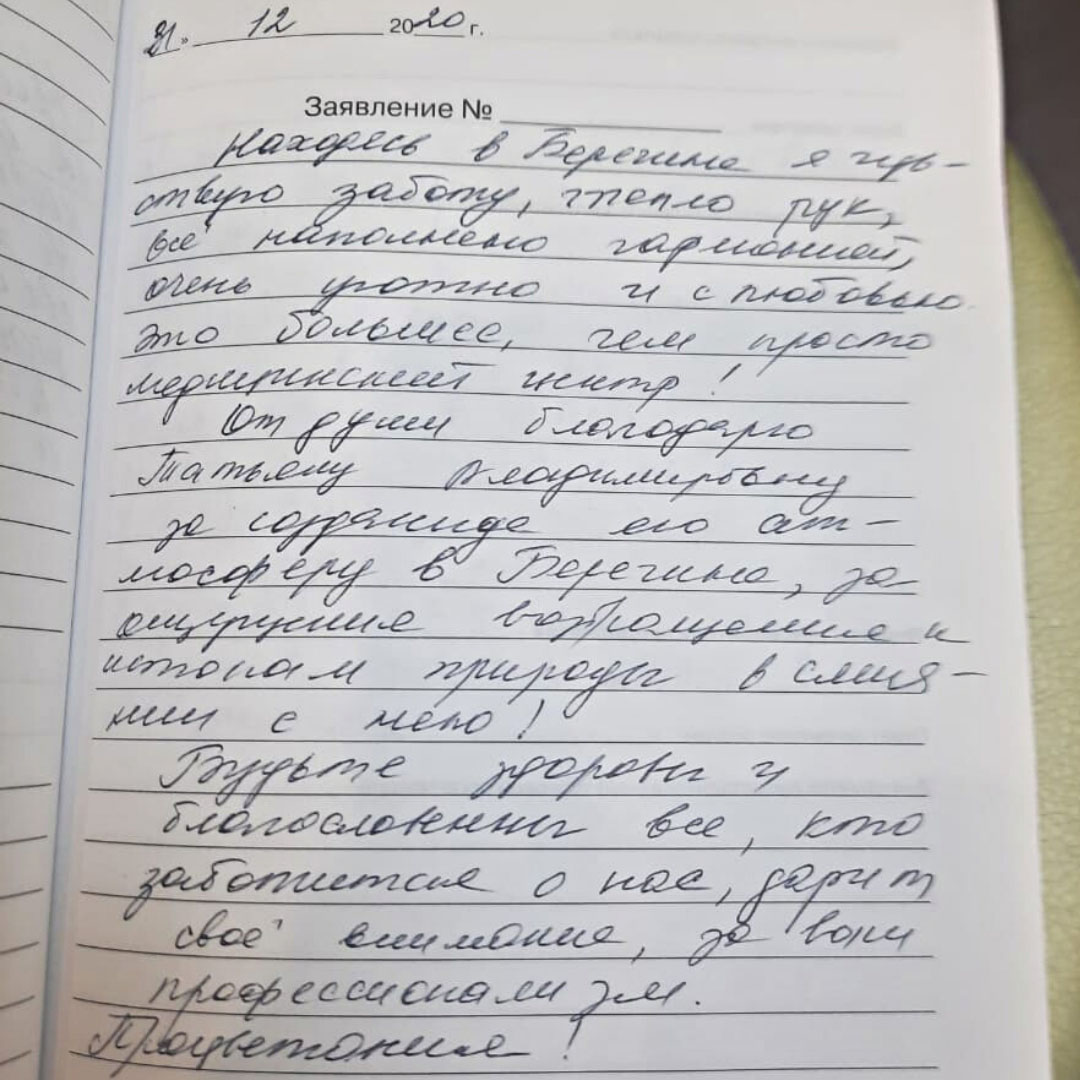 21» 12 2020 г.
Заявление №
Находясь в Берегине я чув-
ствую заботу, тепло рук,
всё наполнено гармонией,
очень уютно и с любовью.
Это большее, чем просто
медицинский центр!
От души благодарю
Татьяну Владимировну
за создание ею ат-
мосферу в Берегине, за
ощущение возвращения к
истокам природы в слия-
нии с нею!
Будьте здоровы и
благословенны все, кто
заботится о нас, дарит
своё внимание, за ваш
профессионализм.
Процветания!